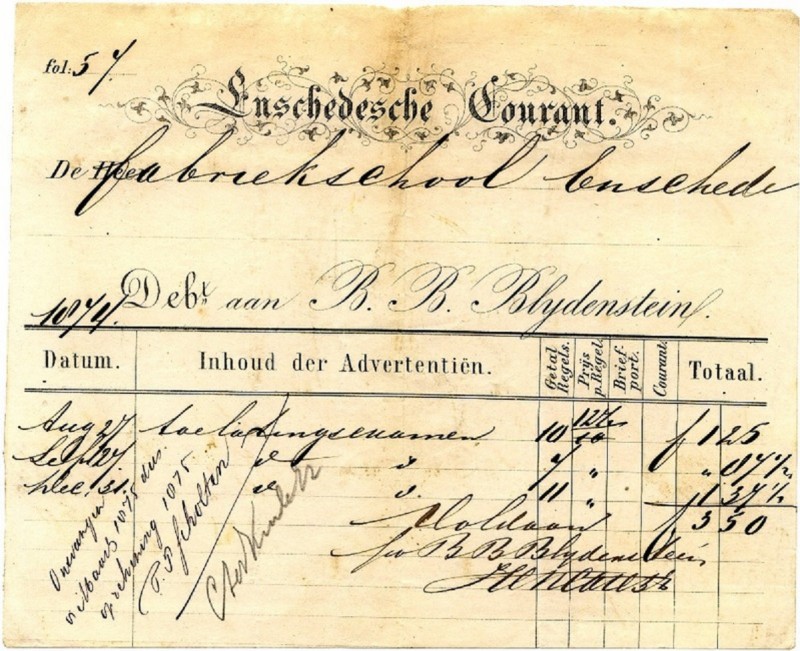 fol: 57
Enschedesche Courant.
De Heer fabriekschool Enschede
1874. Debr. aan B. B. Blydenstein.
Datum. Inhoud der Advertentiën. Getal Regels. Prijs p. Regel. Brief port. Courant. Totaal.
Aug 27 toelatingsexamen 10 12½ f 1 25
Sept 27 d d 7 " " 87½
Dec. 31. d d. 11 " 1 37½
Voldaan f 3 50
po B B Blydenstein
Ontvangen
in Maart 1875 dus
op rekening 1875.
Scholten